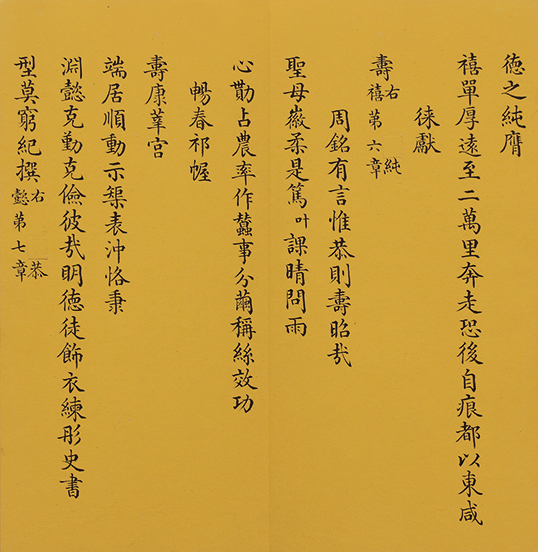 德之純膺
禧單厚遠至二萬里奔走恐後自痕都以東咸
徠獻
壽禧右第六章純
周銘有言惟恭則壽昭哉
聖母徽柔是篤叶課晴問雨
心勤占農率作蠶事分繭稱絲效功
暢春祁幄
壽康萃宮
端居順動示榘表沖恪秉
淵懿克勤克儉彼哉明德徒飾衣練彤史書
型莫窮紀撰右恭懿第七章